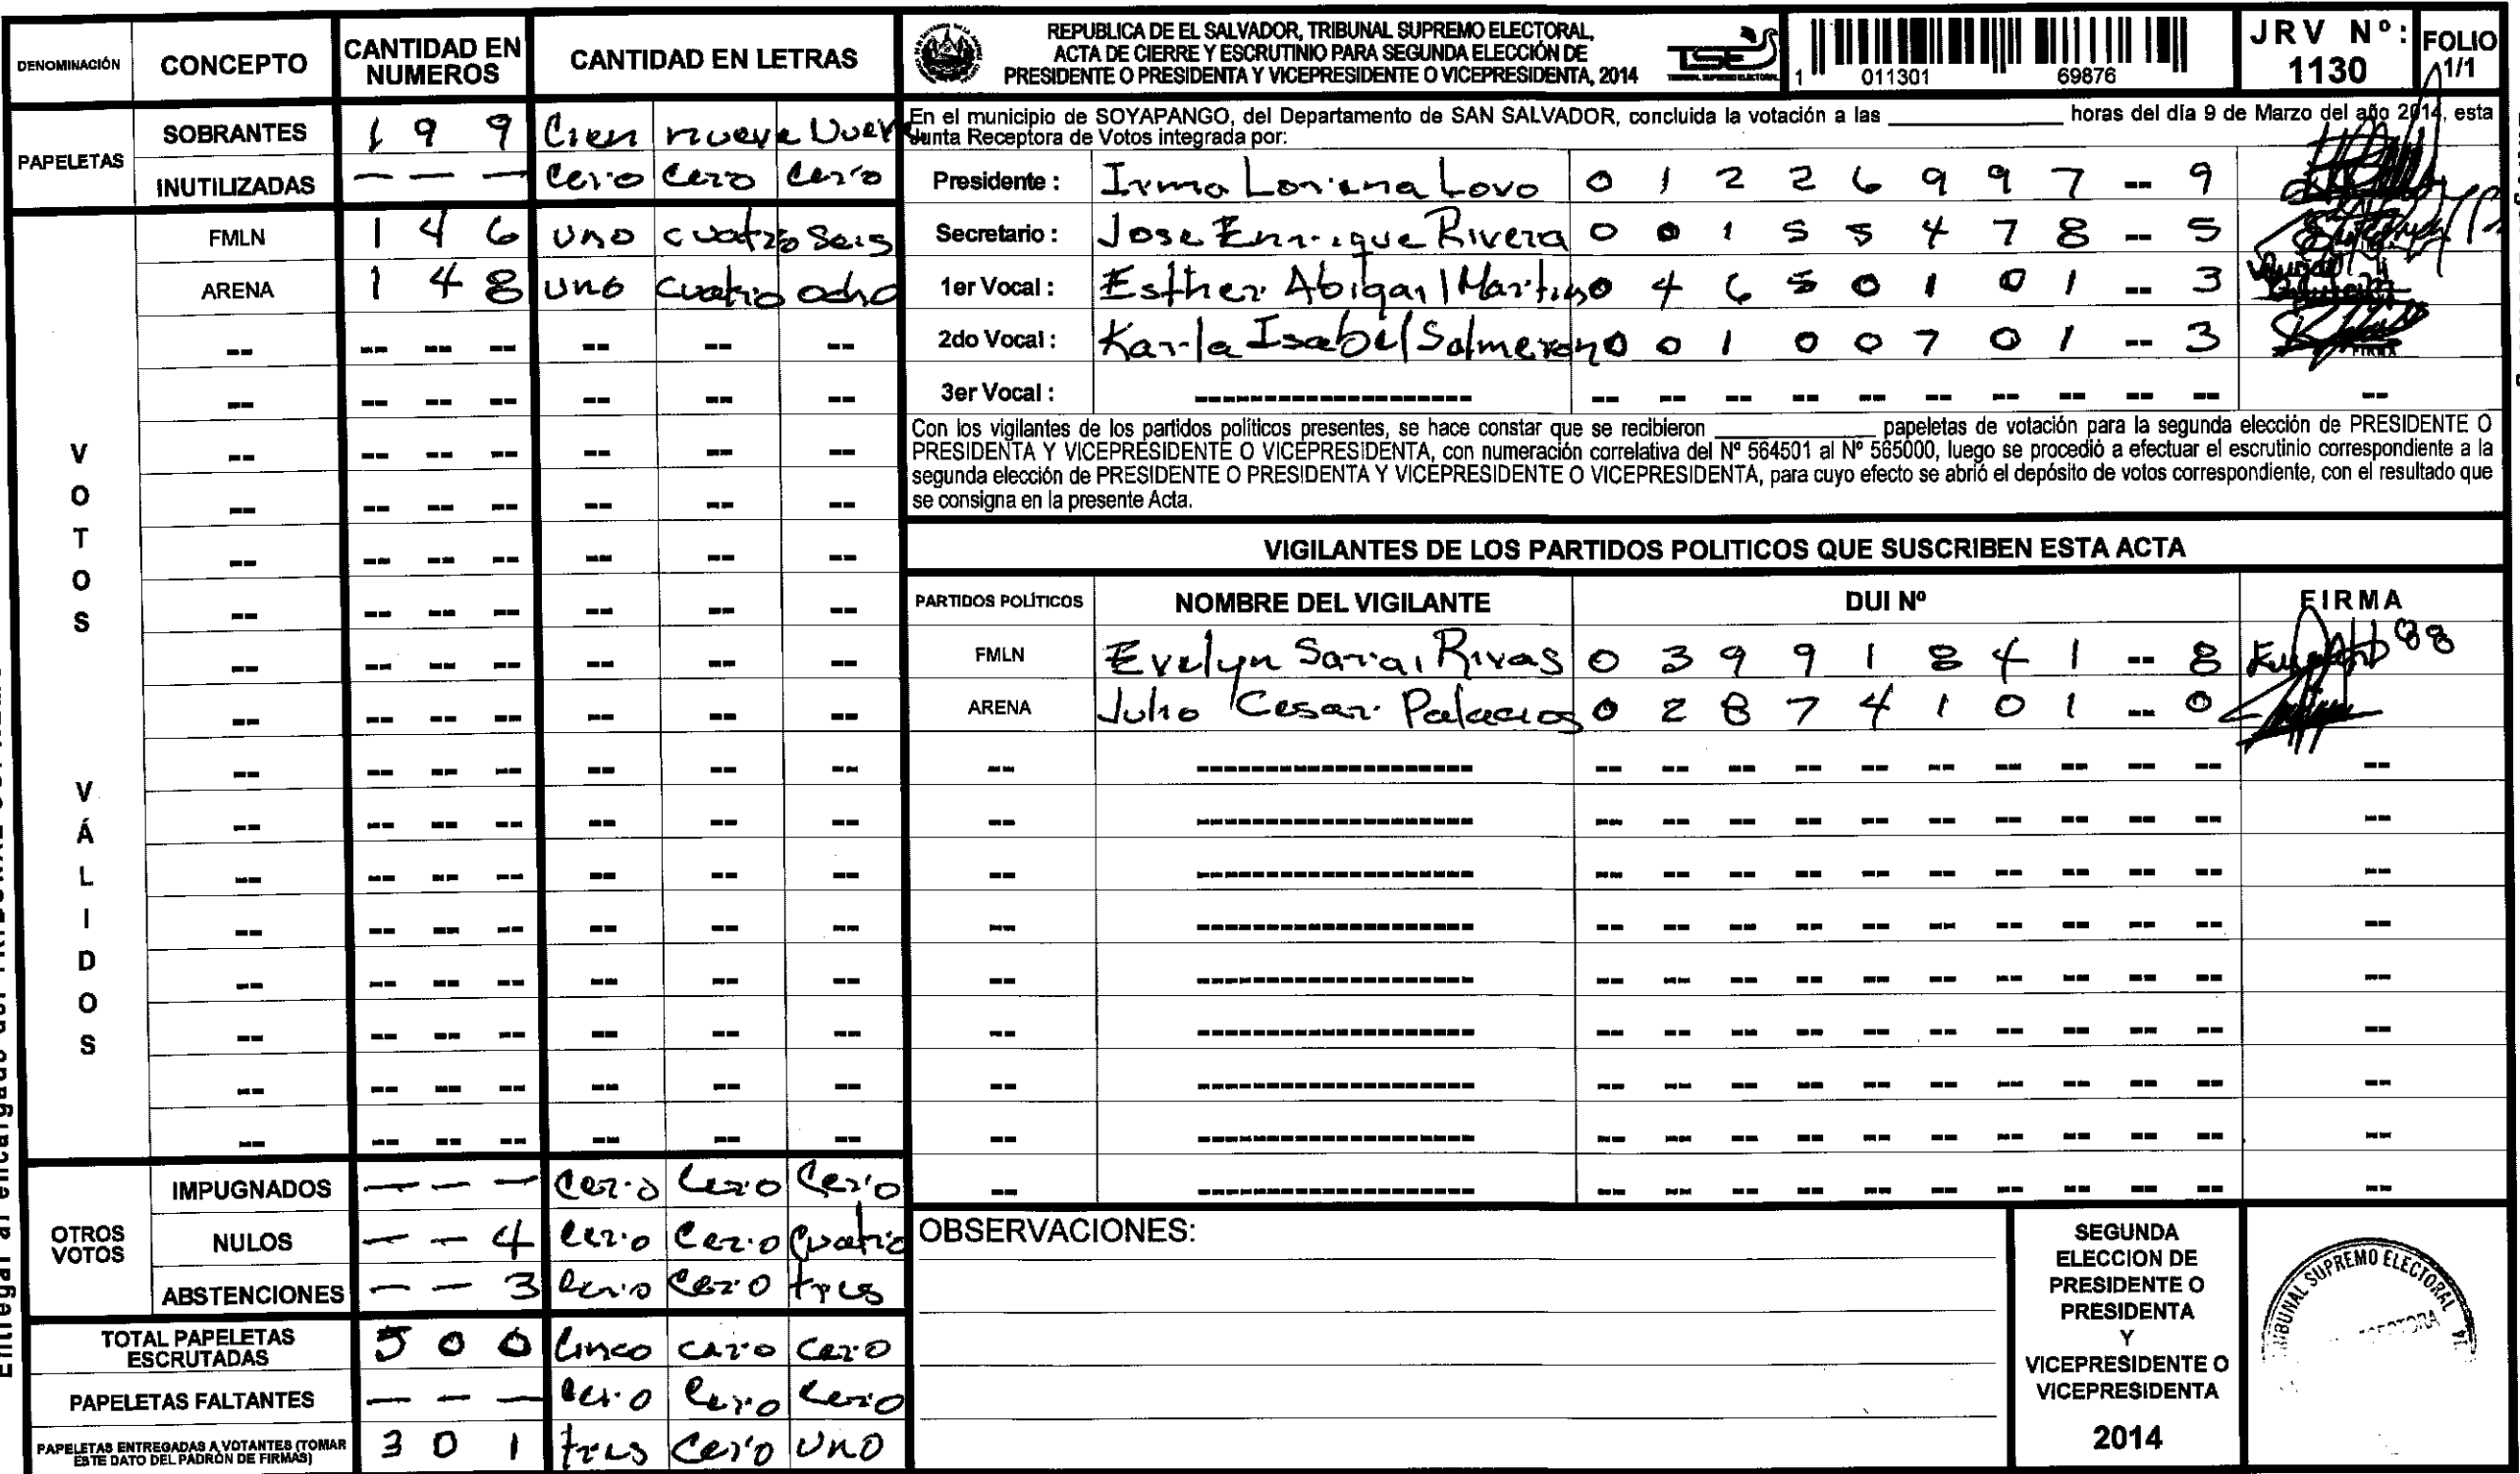 DENOMINACIÓN CONCEPTO CANTIDAD EN NUMEROS CANTIDAD EN LETRAS
PAPELETAS
SOBRANTES 1 9 9 Cien nueve Nueve
INUTILIZADAS — — — Cero Cero Cero
VOTOS VÁLIDOS
FMLN 1 4 6 uno cuatro Seis
ARENA 1 4 8 uno cuatro ocho
OTROS VOTOS
IMPUGNADOS — — — Cero Cero Cero
NULOS — — 4 Cero Cero Cuatro
ABSTENCIONES — — 3 Cero Cero tres
TOTAL PAPELETAS ESCRUTADAS 5 0 0 Cinco cero Cero
PAPELETAS FALTANTES — — — Cero Cero Cero
PAPELETAS ENTREGADAS A VOTANTES (TOMAR ESTE DATO DEL PADRÓN DE FIRMAS) 3 0 1 tres Cero Uno
REPUBLICA DE EL SALVADOR, TRIBUNAL SUPREMO ELECTORAL,
ACTA DE CIERRE Y ESCRUTINIO PARA SEGUNDA ELECCIÓN DE
PRESIDENTE O PRESIDENTA Y VICEPRESIDENTE O VICEPRESIDENTA, 2014
TSE
1 011301 69876
JRV Nº: 1130
FOLIO 1/1
En el municipio de SOYAPANGO, del Departamento de SAN SALVADOR, concluida la votación a las ____ horas del día 9 de Marzo del año 2014, esta
Junta Receptora de Votos integrada por:
Presidente : Irma Loriena Lovo 0 1 2 2 6 9 9 7 -- 9
Secretario : Jose Enrique Rivera 0 0 1 5 5 4 7 8 -- 5
1er Vocal : Esther Abigail Martino 0 4 6 5 0 1 0 1 -- 3
2do Vocal : Karla Isabel Salmeron 0 0 1 0 0 7 0 1 -- 3
3er Vocal :
Con los vigilantes de los partidos políticos presentes, se hace constar que se recibieron ____ papeletas de votación para la segunda elección de PRESIDENTE O
PRESIDENTA Y VICEPRESIDENTE O VICEPRESIDENTA, con numeración correlativa del Nº 564501 al Nº 565000, luego se procedió a efectuar el escrutinio correspondiente a la
segunda elección de PRESIDENTE O PRESIDENTA Y VICEPRESIDENTE O VICEPRESIDENTA, para cuyo efecto se abrió el depósito de votos correspondiente, con el resultado que
se consigna en la presente Acta.
VIGILANTES DE LOS PARTIDOS POLITICOS QUE SUSCRIBEN ESTA ACTA
PARTIDOS POLÍTICOS NOMBRE DEL VIGILANTE DUI Nº FIRMA
FMLN Evelyn Sarai Rivas 0 3 9 9 1 8 4 1 -- 8
ARENA Julio Cesar Palacios 0 2 8 7 4 1 0 1 -- 0
OBSERVACIONES:
SEGUNDA
ELECCION DE
PRESIDENTE O
PRESIDENTA
Y
VICEPRESIDENTE O
VICEPRESIDENTA
2014
TRIBUNAL SUPREMO ELECTORAL
Entregar al encargado del